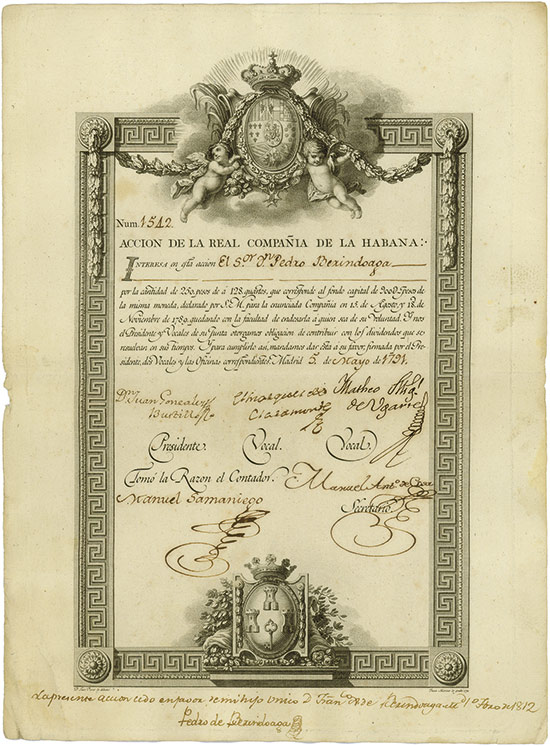 Num. 1542.
ACCION DE LA REAL COMPAÑIA DE LA HABANA:·
INTERESA en esta accion El S.ᵒʳ D.ⁿ Pedro Berindoaga
por la cantidad de 250 pesos de á 128 quartos, que corresponde al fondo capital de Pesos de
la misma moneda, declarado por S. M. para la enunciada Compañia en 15. de Agosto, y 18. de
Noviembre de 1789, quedando con la facultad de endosarla a quien sea de su Voluntad. Y nos
el Presidente y Vocales de su Junta otorgamos obligacion de contribuir con los dividendos que se
resuelvan en sus tiempos. Y para cumplirlo asi, mandamos dar esta a su favor, firmada por el Pre-
sidente, dos Vocales y las Oficinas correspondientes. Madrid 5. de Mayo de 1791.
D.ⁿ Juan Gonzalez
El Marques de Matheo
Claramonte de Ugarte
Presidente. Vocal. Vocal.
Tomó la Razon el Contador. Manuel Ant.º de
Manuel Samaniego Secretario
La presente accion cedo en favor de mi hijo unico D. Fran.ᶜᵒ de Berindoaga de 1812
Pedro de Berindoaga